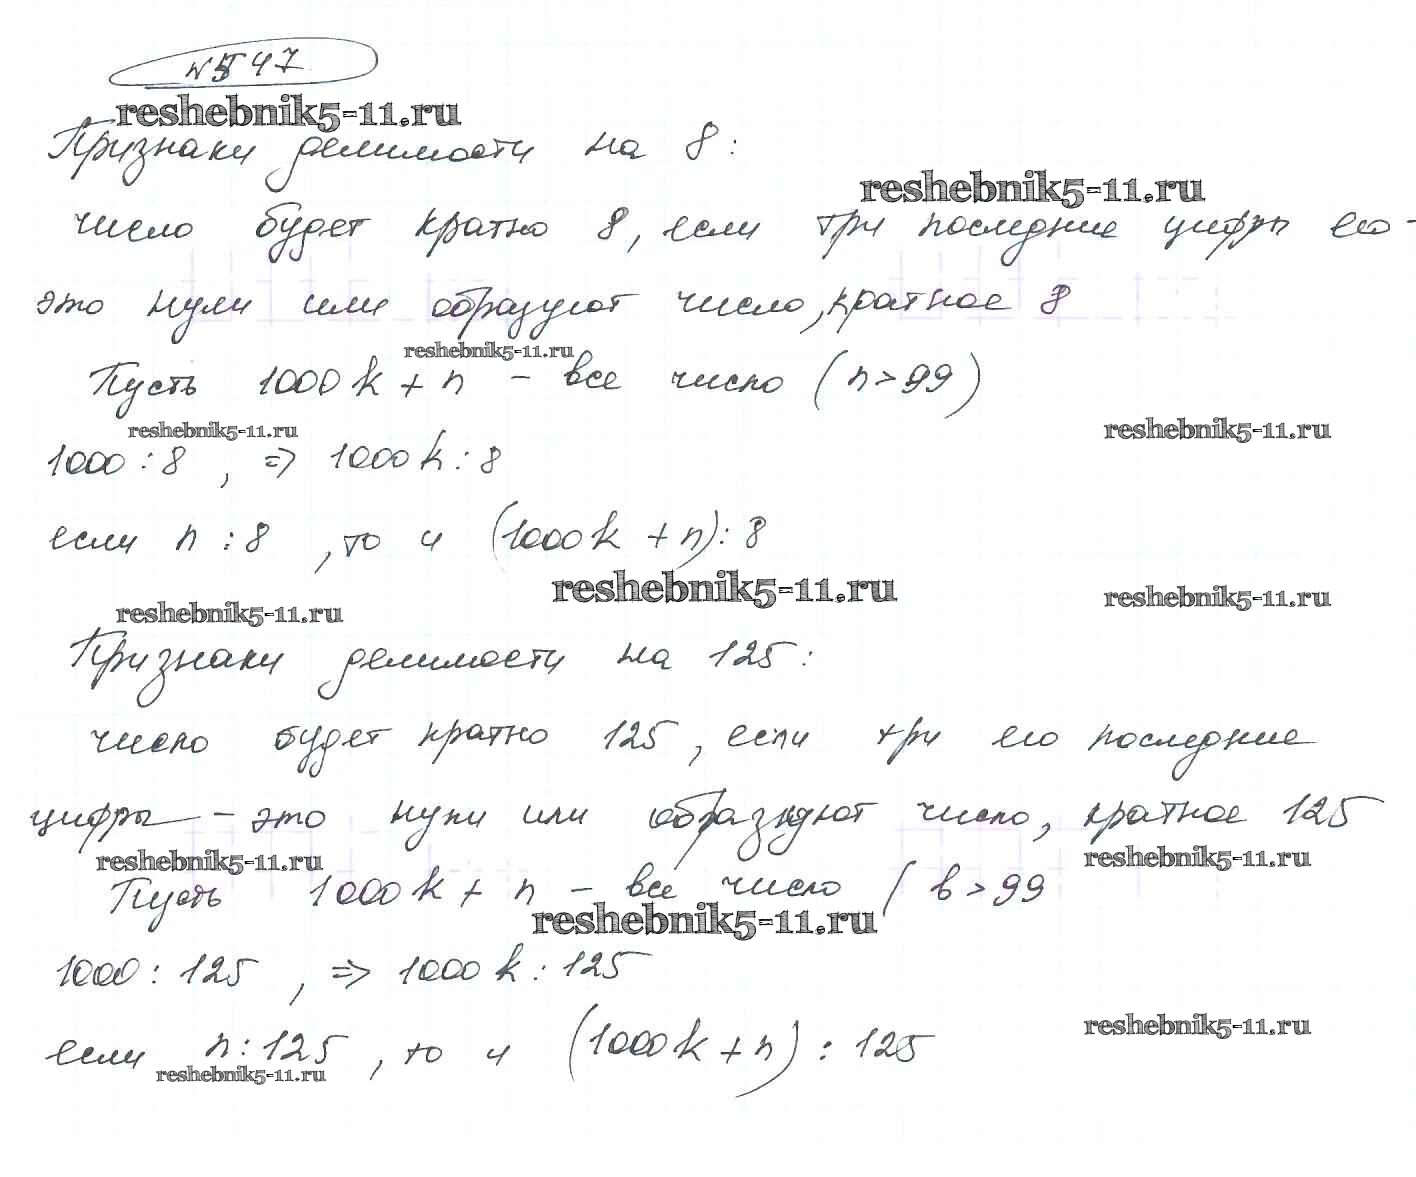 №547
reshebnik5-11.ru
Признаки делимости на 8:
reshebnik5-11.ru
число будет кратно 8, если три последние цифры его -
это нули или образуют число, кратное 8
reshebnik5-11.ru
Пусть 1000k + n - все число (n > 99)
reshebnik5-11.ru
reshebnik5-11.ru
1000 : 8 , => 1000k : 8
если n : 8 , то и (1000k + n) : 8
reshebnik5-11.ru
reshebnik5-11.ru
reshebnik5-11.ru
Признаки делимости на 125 :
число будет кратно 125 , если три его последние
цифры - это нули или образуют число, кратное 125
reshebnik5-11.ru
reshebnik5-11.ru
Пусть 1000k + n - все число ( b > 99
reshebnik5-11.ru
1000 : 125 , => 1000k : 125
reshebnik5-11.ru
если n : 125 , то и (1000k + n) : 125
reshebnik5-11.ru